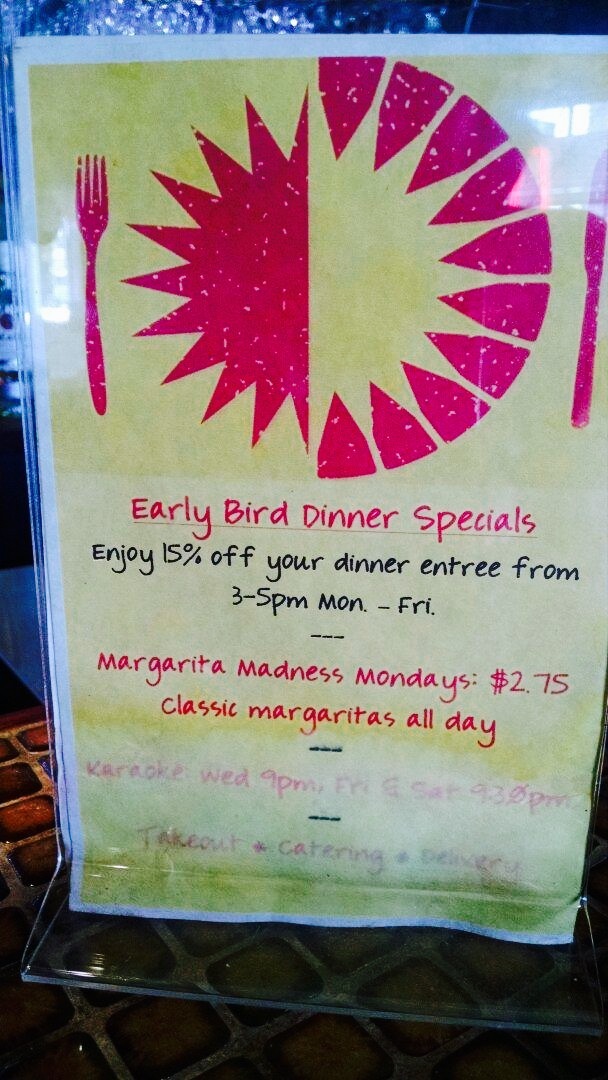 Early Bird Dinner Specials
Enjoy 15% off your dinner entree from
3-5pm Mon. - Fri.
---
Margarita Madness Mondays: $2.75
Classic margaritas all day
---
Karaoke: Wed 9pm, Fri & Sat 930pm
---
Takeout * Catering * Delivery